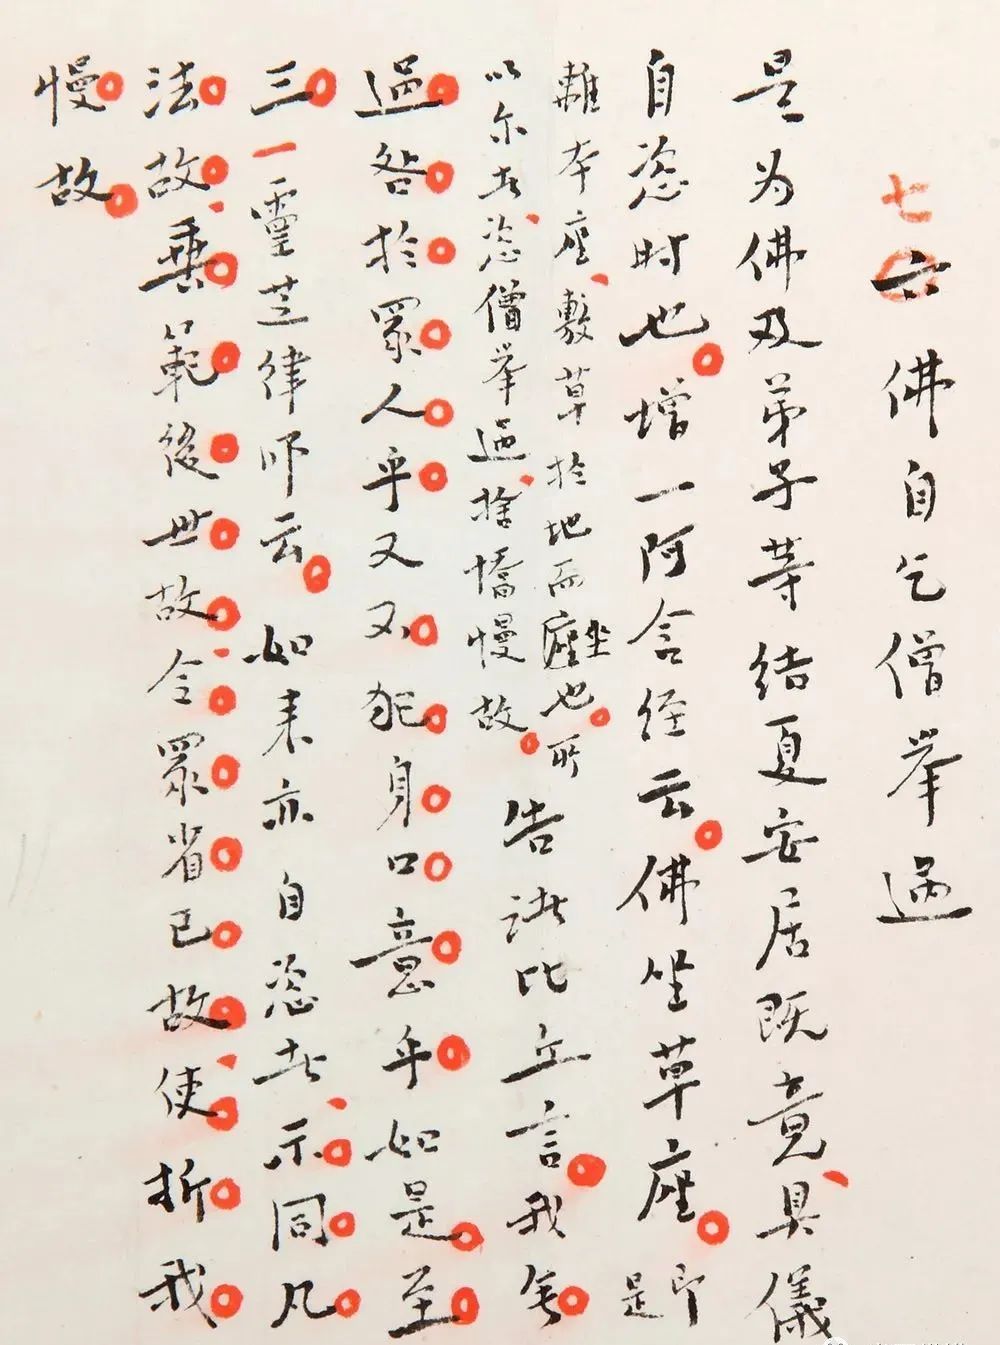 七六佛自乞僧举過
是为佛及弟子等结夏安居既竟具儀
自恣时也增一阿含经云佛坐草座即是
離本座敷草於地而座坐也所
以尔者恣僧举過捨憍慢故告諸比丘言我無
過咎於眾人乎又不犯身口意乎如是至
三一靈芝律师云如来亦自恣者示同凡
法故垂範後世故令眾省己故使折我
慢故